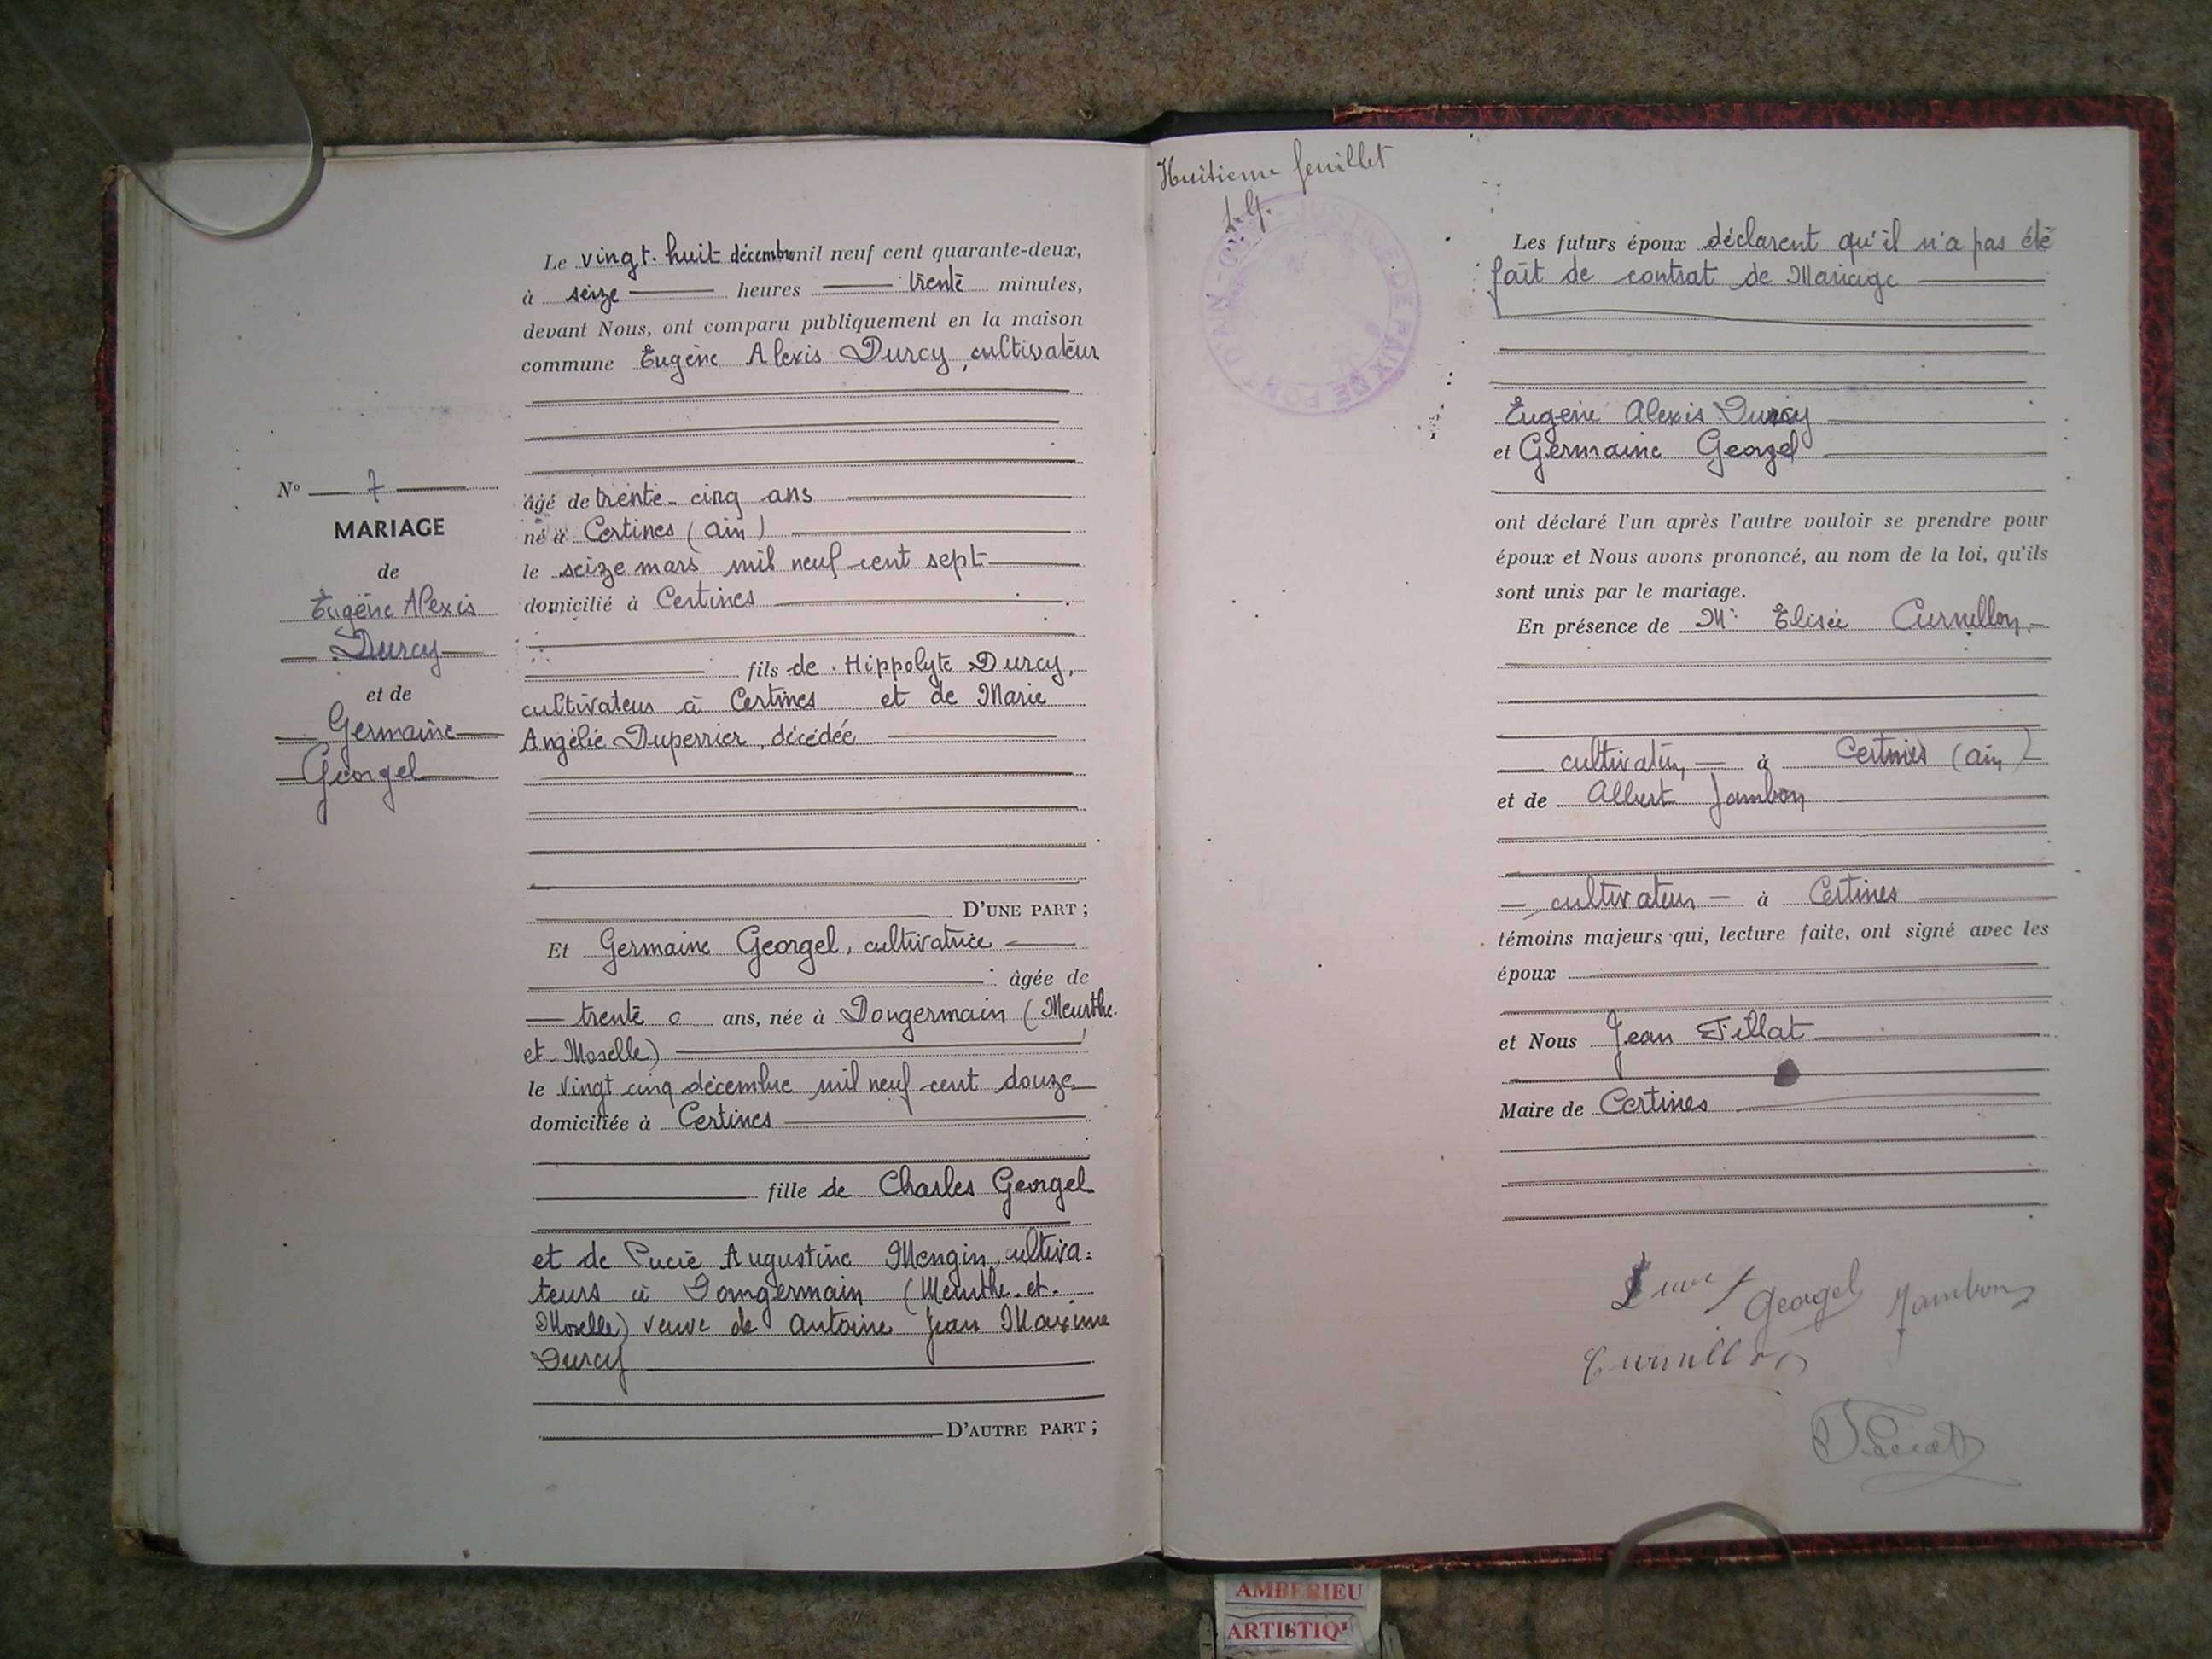 Le vingt-huit décembre mil neuf cent quarante-deux,
à seize heures trente minutes,
devant Nous, ont comparu publiquement en la maison
commune Eugène Alexis Durcy, cultivateur
N° 7
MARIAGE
de
Eugène Alexis
Durcy
et de
Germaine
Georgel
âgé de trente-cinq ans
né à Certines (Ain)
le seize mars mil neuf cent sept
domicilié à Certines
fils de Hippolyte Durcy,
cultivateur à Certines et de Marie
Angélie Duperrier, décédée
D'UNE PART ;
Et Germaine Georgel, cultivatrice
âgée de
trente ans, née à Dongermain (Meurthe-
et-Moselle)
le vingt cinq décembre mil neuf cent douze
domiciliée à Certines
fille de Charles Georgel
et de Lucie Augustine Mengin, cultiva=
teurs à Domgermain (Meurthe-et-
Moselle) veuve de Antoine Jean Maxime
Durcy
D'AUTRE PART ;
Huitième feuillet
JUSTICE DE PAIX DE PONT D'AIN
Les futurs époux déclarent qu'il n'a pas été
fait de contrat de Mariage
Eugène Alexis Durcy
et Germaine Georgel
ont déclaré l'un après l'autre vouloir se prendre pour
époux et Nous avons prononcé, au nom de la loi, qu'ils
sont unis par le mariage.
En présence de Mr Elisée Curnillon,
cultivateur, à Certines (Ain)
et de Albert Jambon
cultivateur à Certines
témoins majeurs qui, lecture faite, ont signé avec les
époux
et Nous Jean Tillat
Maire de Certines
Georgel Jambon
Curnillon
AMBERIEU
ARTISTIQU